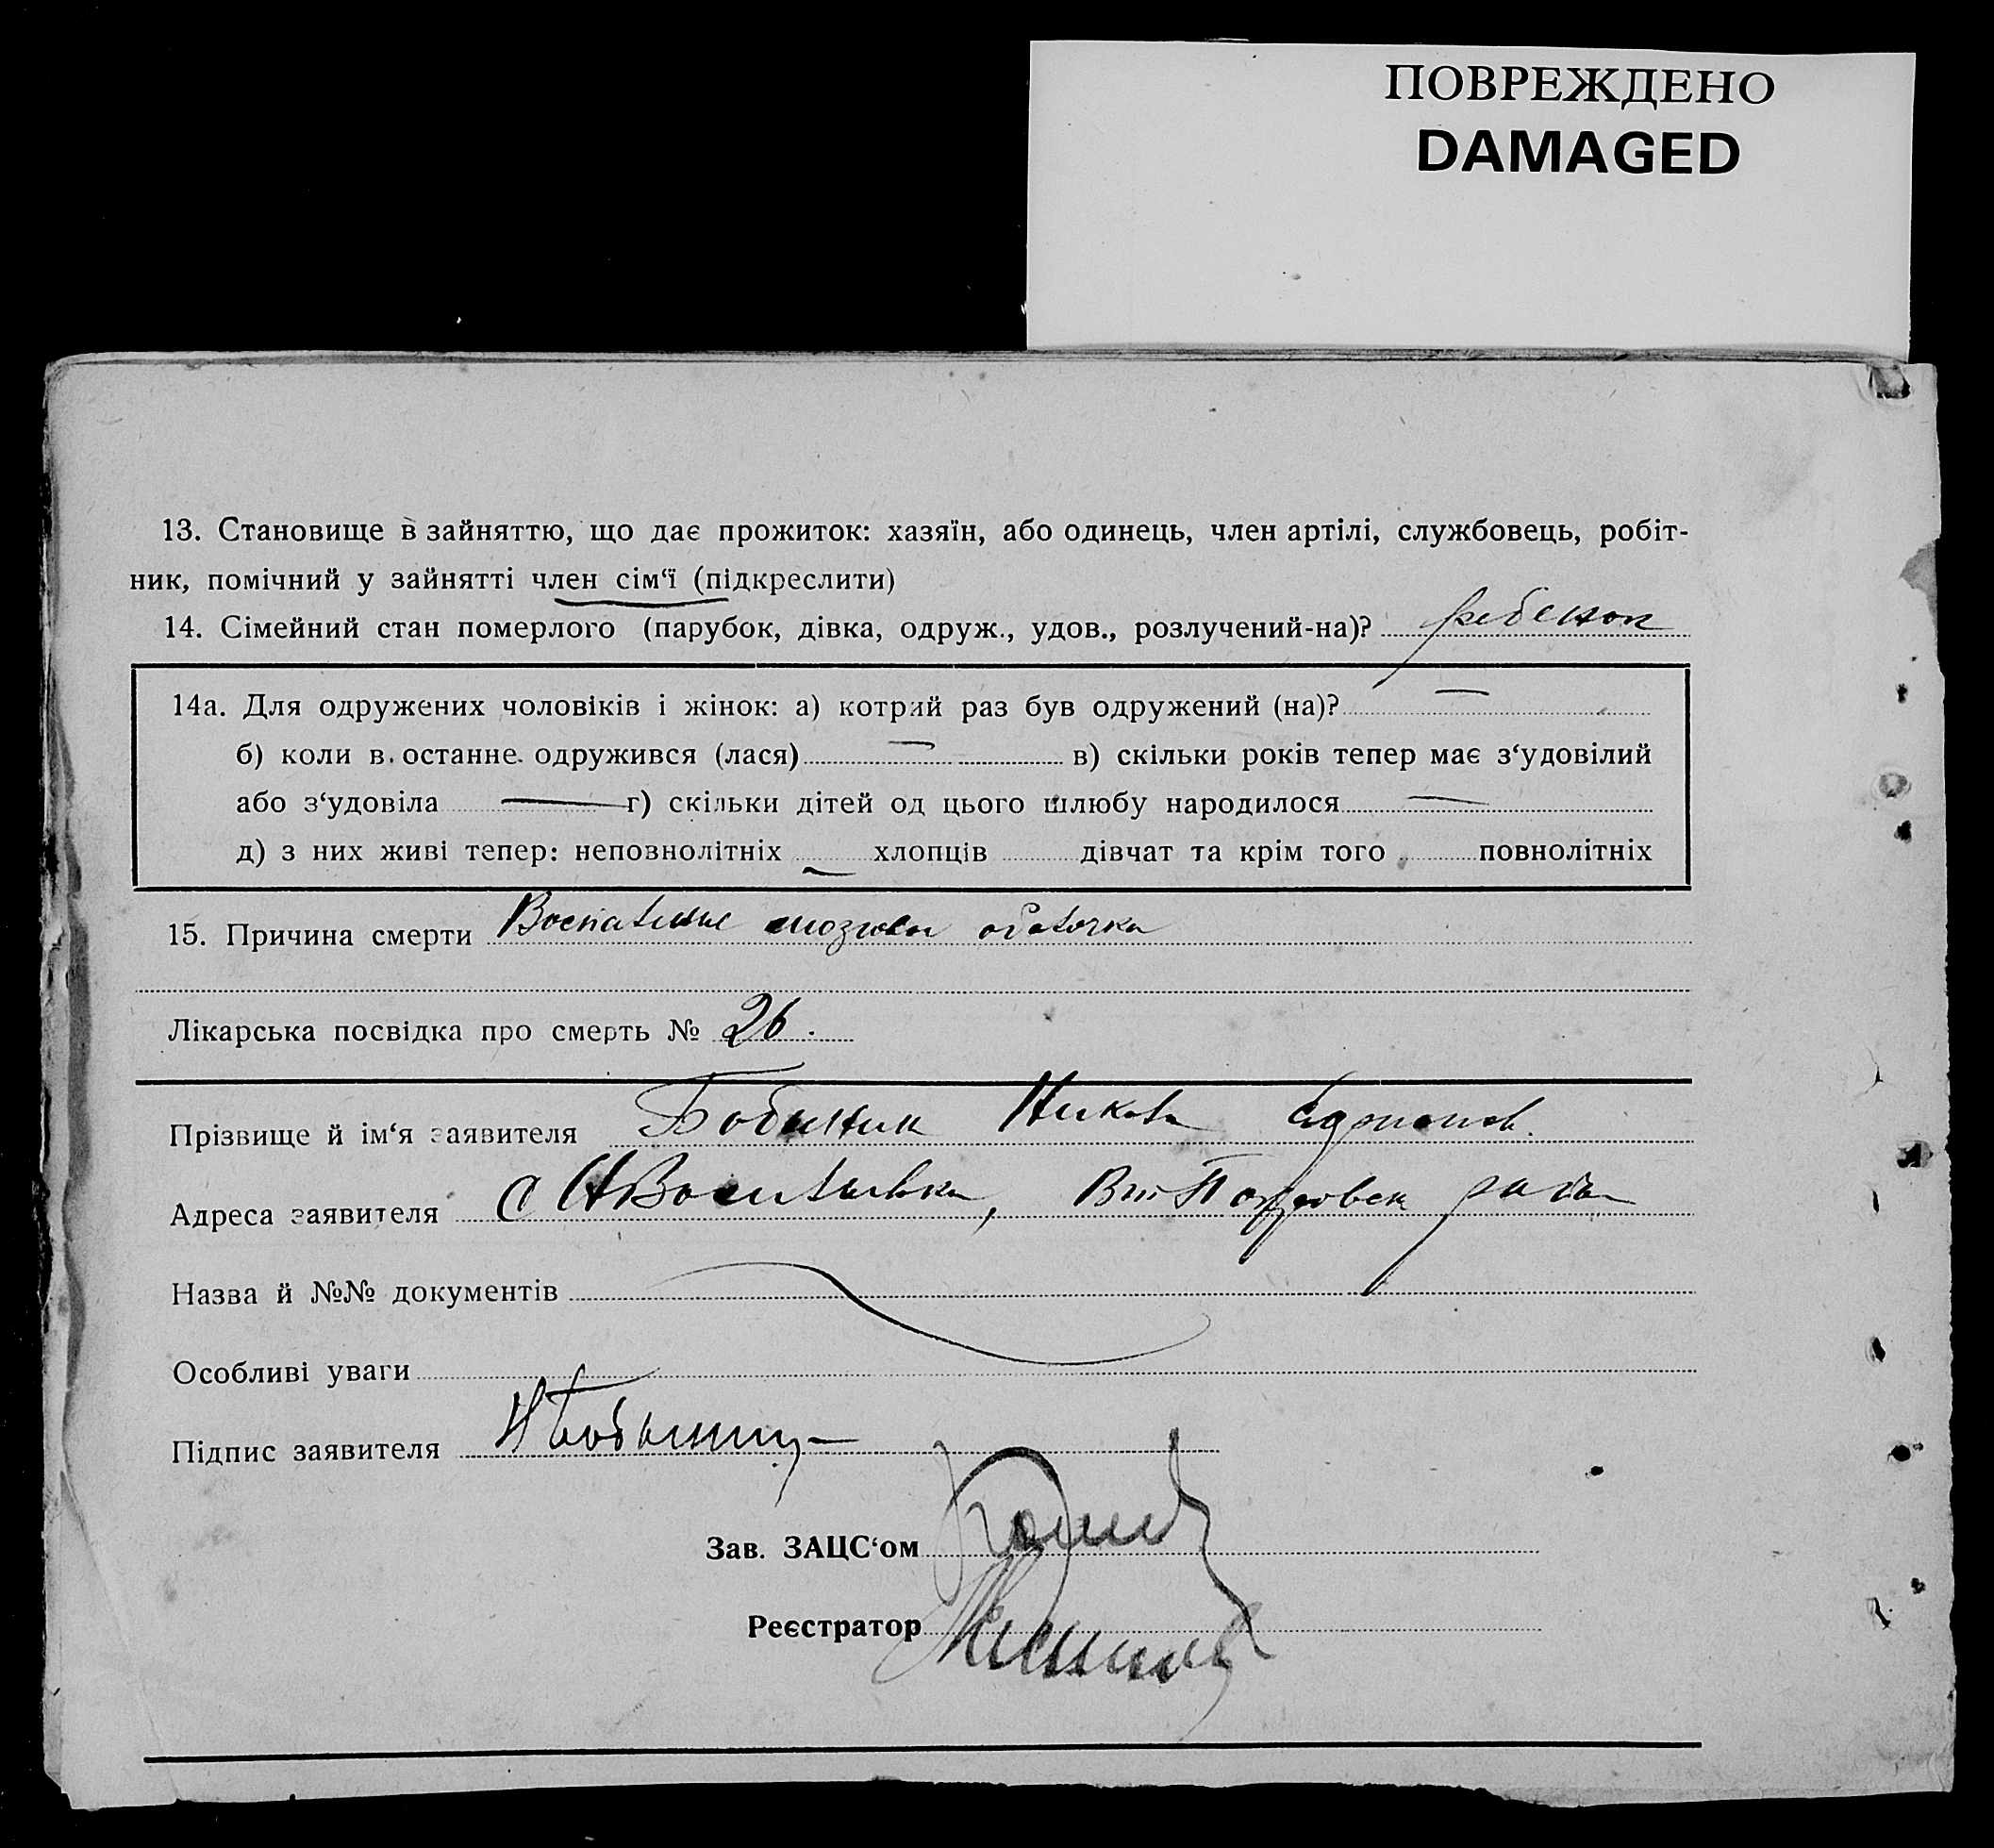 ПОВРЕЖДЕНО
DAMAGED
13. Становище в зайняттю, що дає прожиток: хазяїн, або одинець, член артілі, службовець, робіт-
ник, помічний у зайнятті член сім‘ї (підкреслити)
14. Сімейний стан померлого (парубок, дівка, одруж., удов., розлучений-на)? ребенок
14а. Для одружених чоловіків і жінок: а) котрий раз був одружений (на)? —
б) коли в останнє одружився (лася) — в) скільки років тепер має з‘удовілий
або з‘удовіла — г) скільки дітей од цього шлюбу народилося —
д) з них живі тепер: неповнолітніх — хлопців дівчат та крім того повнолітніх
15. Причина смерти Воспаление мозговой оболочки
Лікарська посвідка про смерть № 26.
Прізвище й ім‘я заявителя
Адреса заявителя с рада
Назва й №№ документів
Особливі уваги
Підпис заявителя
Зав. ЗАЦС‘ом
Реєстратор